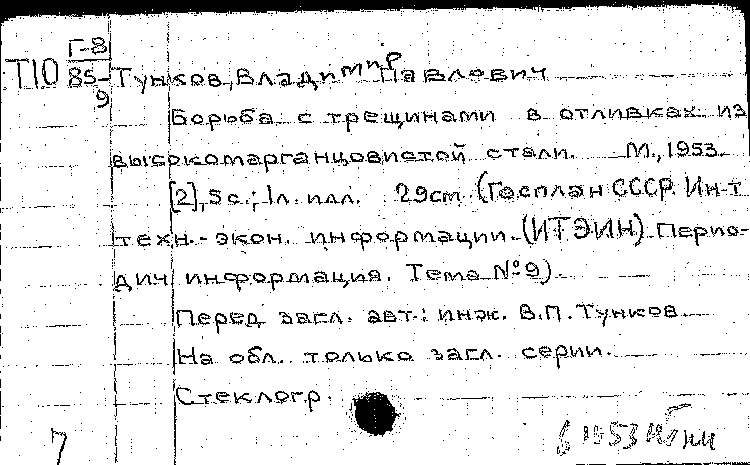 Г-8
Т10 85-
9
Тунков, Владимир Павлович
Борьба с трещинами в отливках из
высокомарганцовистой стали. М., 1953.
[2], 5 с.; 1 л. илл. 29 см. (Госплан СССР. Ин-т
техн.-экон. информации. (ИТЭИН). Перио-
дич информация. Тема № 9)
Перед загл. авт.: инж. В.П. Тунков
На обл. только загл. серии.
Стеклогр.
7